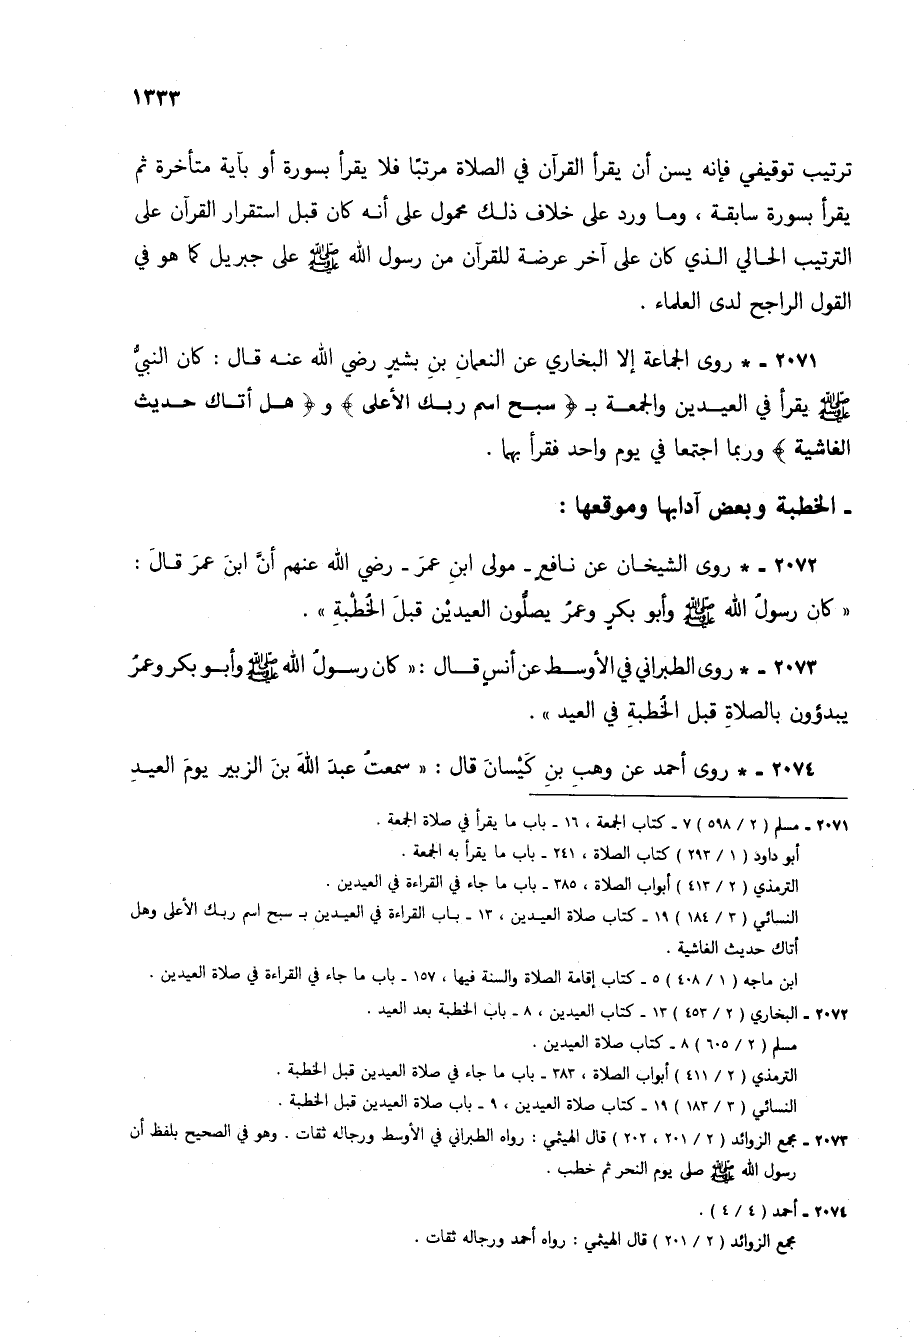 ١٣٣٣
ترتيب توقيفي فإنه يسن أن يقرأ القرآن في الصلاة مرتبًا فلا يقرأ بسورة أو بآية متأخرة ثم
يقرأ بسورة سابقة ، وما ورد على خلاف ذلك محمول على أنه كان قبل استقرار القرآن على
الترتيب الحالي الذي كان على آخر عرضة للقرآن من رسول الله ﷺ على جبريل كما هو في
القول الراجح لدى العلماء .
٢٠٧١ - * روى الجماعة إلا البخاري عن النعمانِ بنِ بشيرٍ رضي الله عنه قال : كان النبيُّ
ﷺ يقرأ في العيدين والجمعة بـ ﴿ سبح اسم ربك الأعلى ﴾ و ﴿ هل أتاك حديث
الغاشية ﴾ وربما اجتمعا في يوم واحد فقرأ بهما .
- الخطبة وبعض آدابها وموقعها :
٢٠٧٢ - * روى الشيخان عن نافعٍ - مولى ابنِ عمرَ - رضي الله عنهم أنَّ ابنَ عمرَ قالَ :
« كان رسولُ الله ﷺ وأبو بكرٍ وعمرُ يصلُّون العيديْن قبلَ الخُطْبةِ » .
٢٠٧٣ - * روى الطبراني في الأوسط عن أنسٍ قال : « كان رسولُ الله ﷺ وأبو بكر وعمرُ
يبدؤون بالصلاةِ قبل الخُطبةِ في العيد » .
٢٠٧٤ - * روى أحمد عن وهبِ بنِ كَيْسانَ قال : « سمعتُ عبدَ اللهَ بنَ الزبير يومَ العيدِ
٢٠٧١ - مسلم ( ٢ / ٥٩٨ ) ٧ - كتاب الجمعة ، ١٦ - باب ما يقرأ في صلاة الجمعة .
أبو داود ( ١ / ٢٩٣ ) كتاب الصلاة ، ٢٤١ - باب ما يقرأ به الجمعة .
الترمذي ( ٢ / ٤١٣ ) أبواب الصلاة ، ٣٨٥ - باب ما جاء في القراءة في العيدين .
النسائي ( ٣ / ١٨٤ ) ١٩ - كتاب صلاة العيدين ، ١٣ - باب القراءة في العيدين بـ سبح اسم ربك الأعلى وهل
أتاك حديث الغاشية .
ابن ماجه ( ١ / ٤٠٨ ) ٥ - كتاب إقامة الصلاة والسنة فيها ، ١٥٧ - باب ما جاء في القراءة في صلاة العيدين .
٢٠٧٢ - البخاري ( ٢ / ٤٥٣ ) ١٣ - كتاب العيدين ، ٨ - باب الخطبة بعد العيد .
مسلم ( ٢ / ٦٠٥ ) ٨ - كتاب صلاة العيدين .
الترمذي ( ٢ / ٤١١ ) أبواب الصلاة ، ٣٨٣ - باب ما جاء في صلاة العيدين قبل الخطبة .
النسائي ( ٣ / ١٨٣ ) ١٩ - كتاب صلاة العيدين ، ٩ - باب صلاة العيدين قبل الخطبة .
٢٠٧٣ - مجمع الزوائد ( ٢ / ٢٠١ ، ٢٠٢ ) قال الهيثمي : رواه الطبراني في الأوسط ورجاله ثقات . وهو في الصحيح بلفظ أن
رسول الله ﷺ صلى يوم النحر ثم خطب .
٢٠٧٤ - أحمد ( ٤ / ٤ ) .
مجمع الزوائد ( ٢ / ٢٠١ ) قال الهيثمي : رواه أحمد ورجاله ثقات .